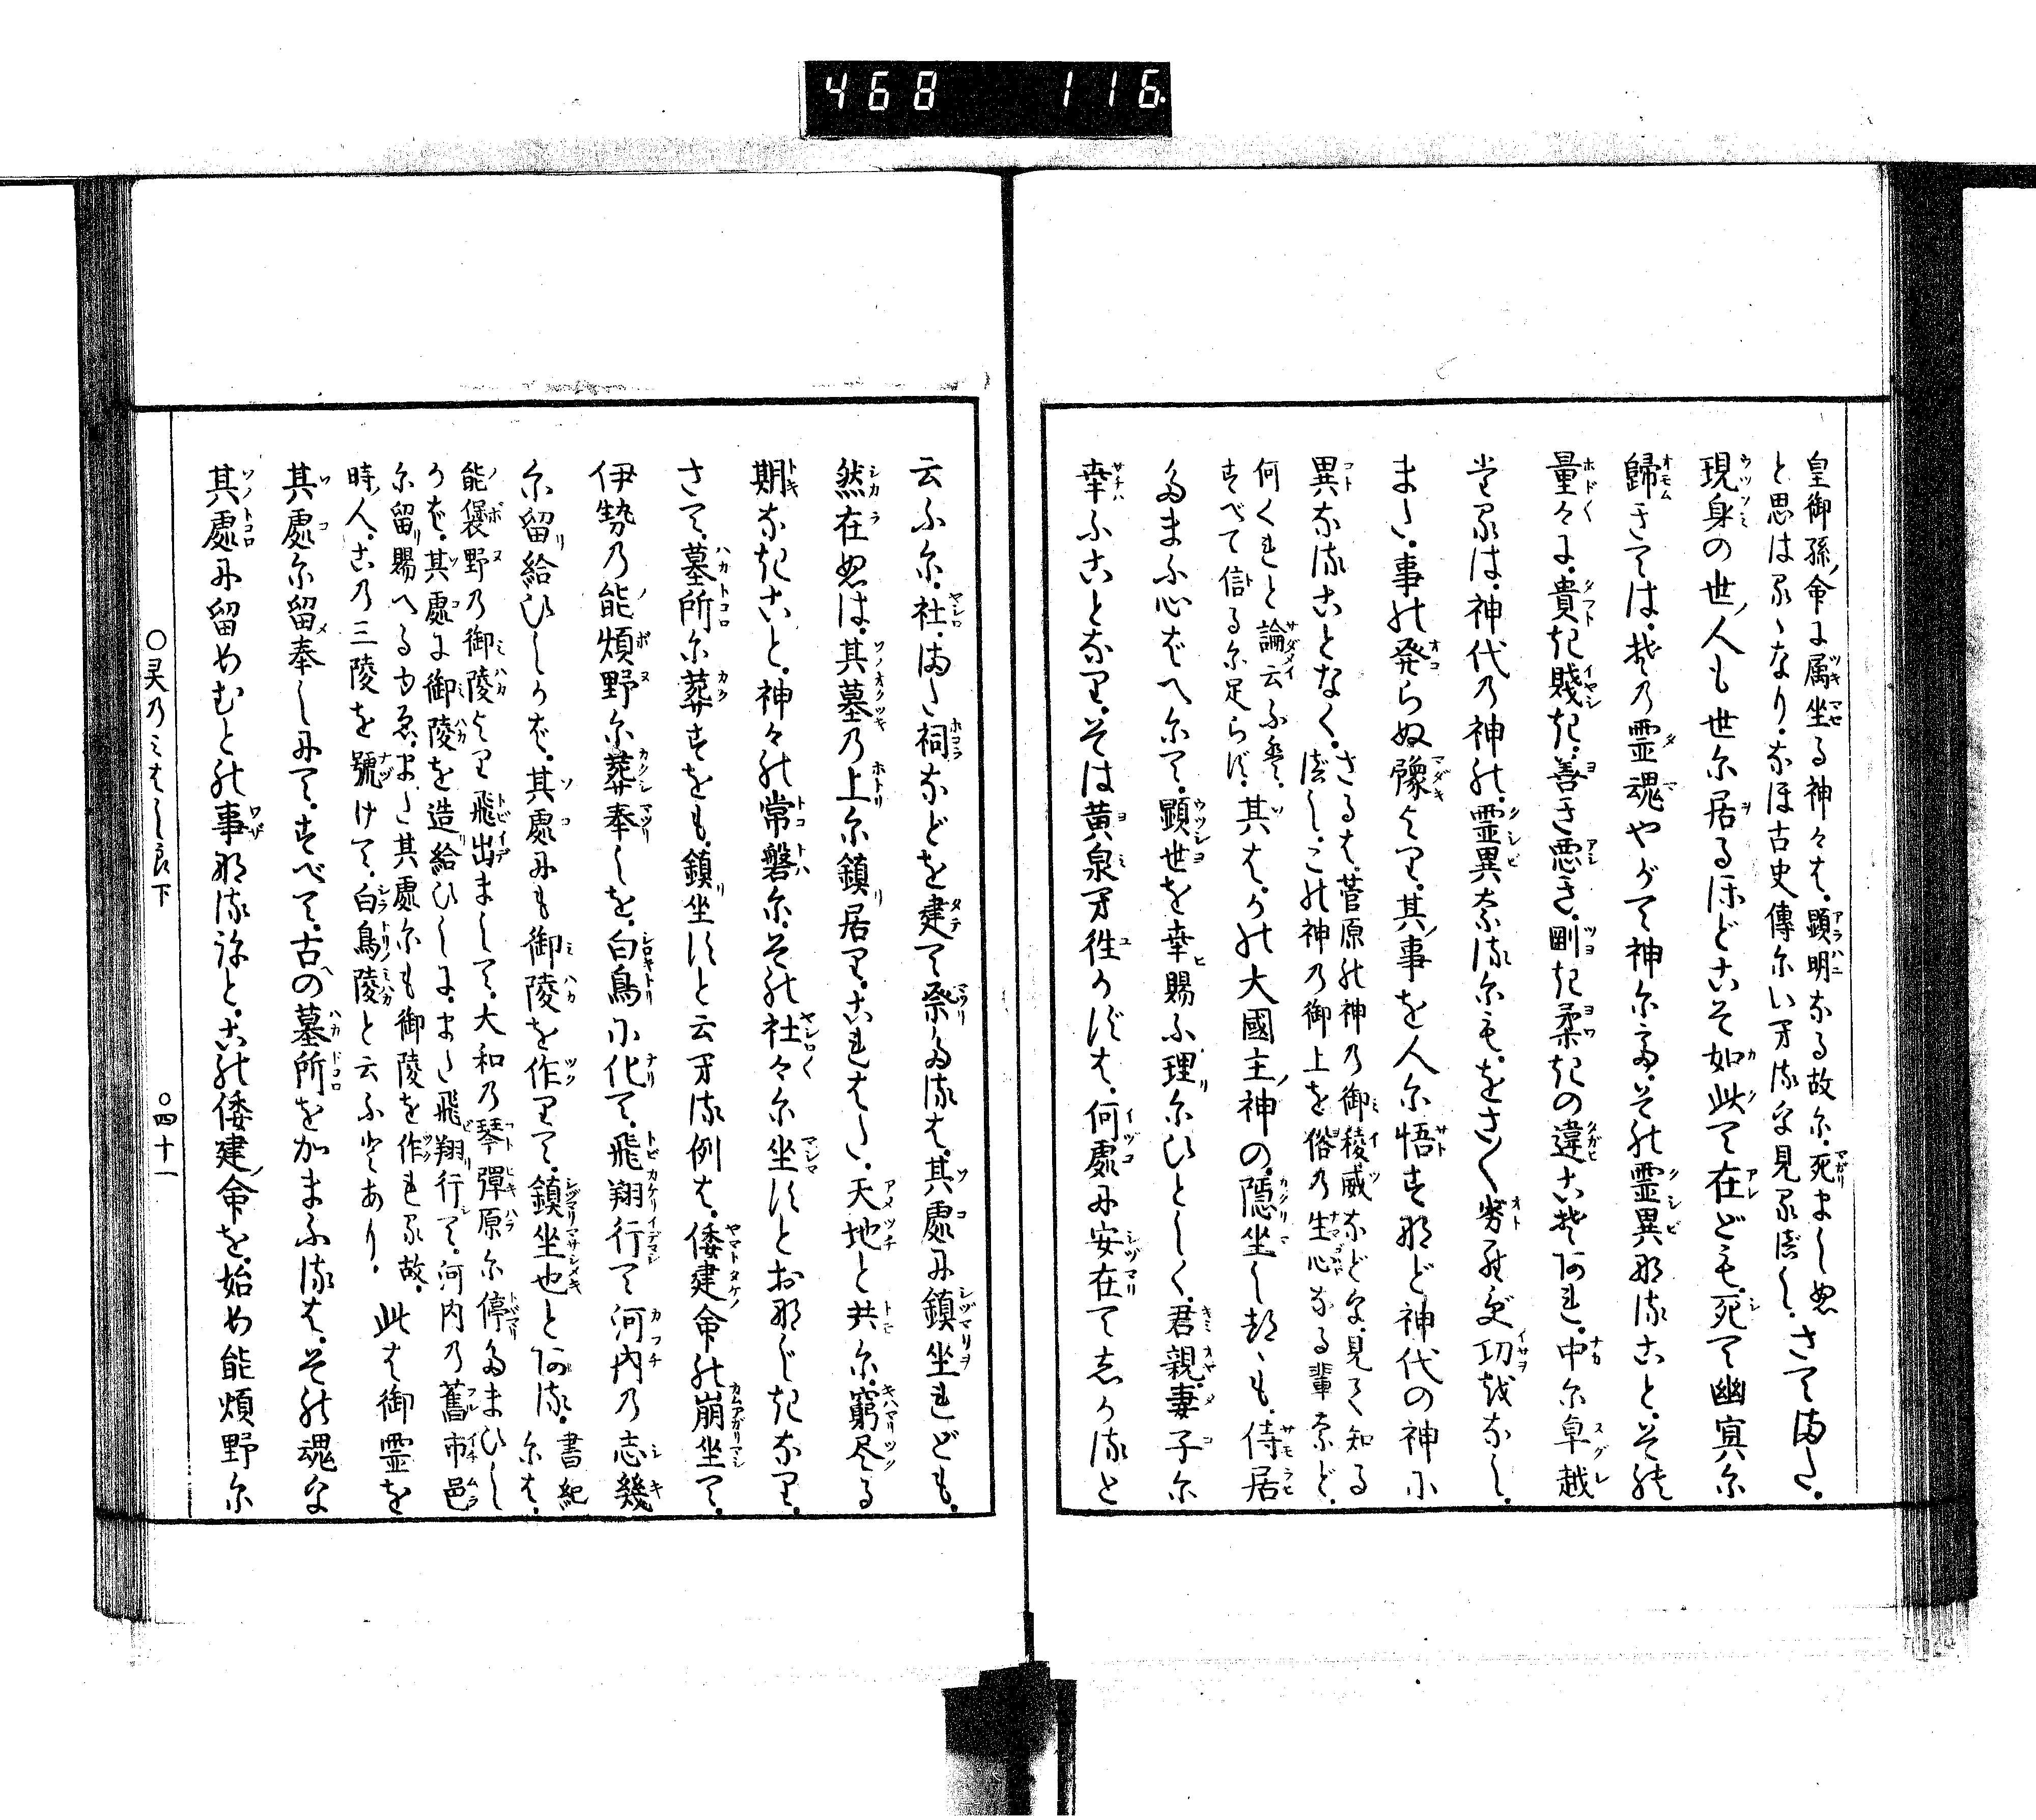 468 116
皇御孫ノ命に属坐る神々は。顕明なる故に。死ましぬ
と思はるゝなり。なほ古史傳にいへるを見るべし。さてまた。
現身の世ノ人も世に居るほどこそ如此て在ども。死て幽冥に
歸きては。その霊魂やがて神にて。その霊異なること。その
量々に。貴き賤き。善き悪き。剛き柔きの違こそあれ。中に卓越
たるは。神代の神の。霊異なるにも。をさ〳〵劣らず功をなし。
また。事の発らぬ豫より。其ノ事を人に悟すなど神代の神に
異なることなく。さるは。菅原の神の御稜威などを見て知る
べし。この神の御上を俗の生心なる輩など。
何くれと論云ふは。
すべて信るに足らず。其は。かの大國主ノ神の。隠坐しつゝも。侍居
たまふ心ばへにて。顕世を幸賜ふ理にひとしく。君親妻子に
幸ふことなり。そは黄泉へ往かずは。何處に安在てしかると
云ふに。社。また祠などを建て祭たるは。其處に鎮坐れども。
然在ぬは。其墓の上に鎮居り。これはた。天地と共に。窮尽る
期なきこと。神々の常磐に。その社々に坐すとおなじきなり。
さて。墓所に葬すをも。鎮坐すと云へる例は。倭建命の崩坐て。
伊勢の能煩野に葬奉しを。白鳥に化て。飛翔行て河内の志幾
に留給ひしかば。其處にも御陵を作りて。鎮坐也とある。書紀には。
能褒野の御陵より飛出まして。大和の琴彈原に停たまひし
かば。其處に御陵を造給ひしに。また飛翔行て。河内の舊市邑
に留賜へるゆゑ。また其處にも御陵を作れる故。
時ノ人。この三陵を號けて。白鳥陵と云ふとあり。此は御霊を
其處に留奉しにて。すべて。古への墓所をかまふるは。その魂を
其處に留めむとの事なるなと。この倭建ノ命を。始め能煩野に
○灵乃みはしら下 ○四十一